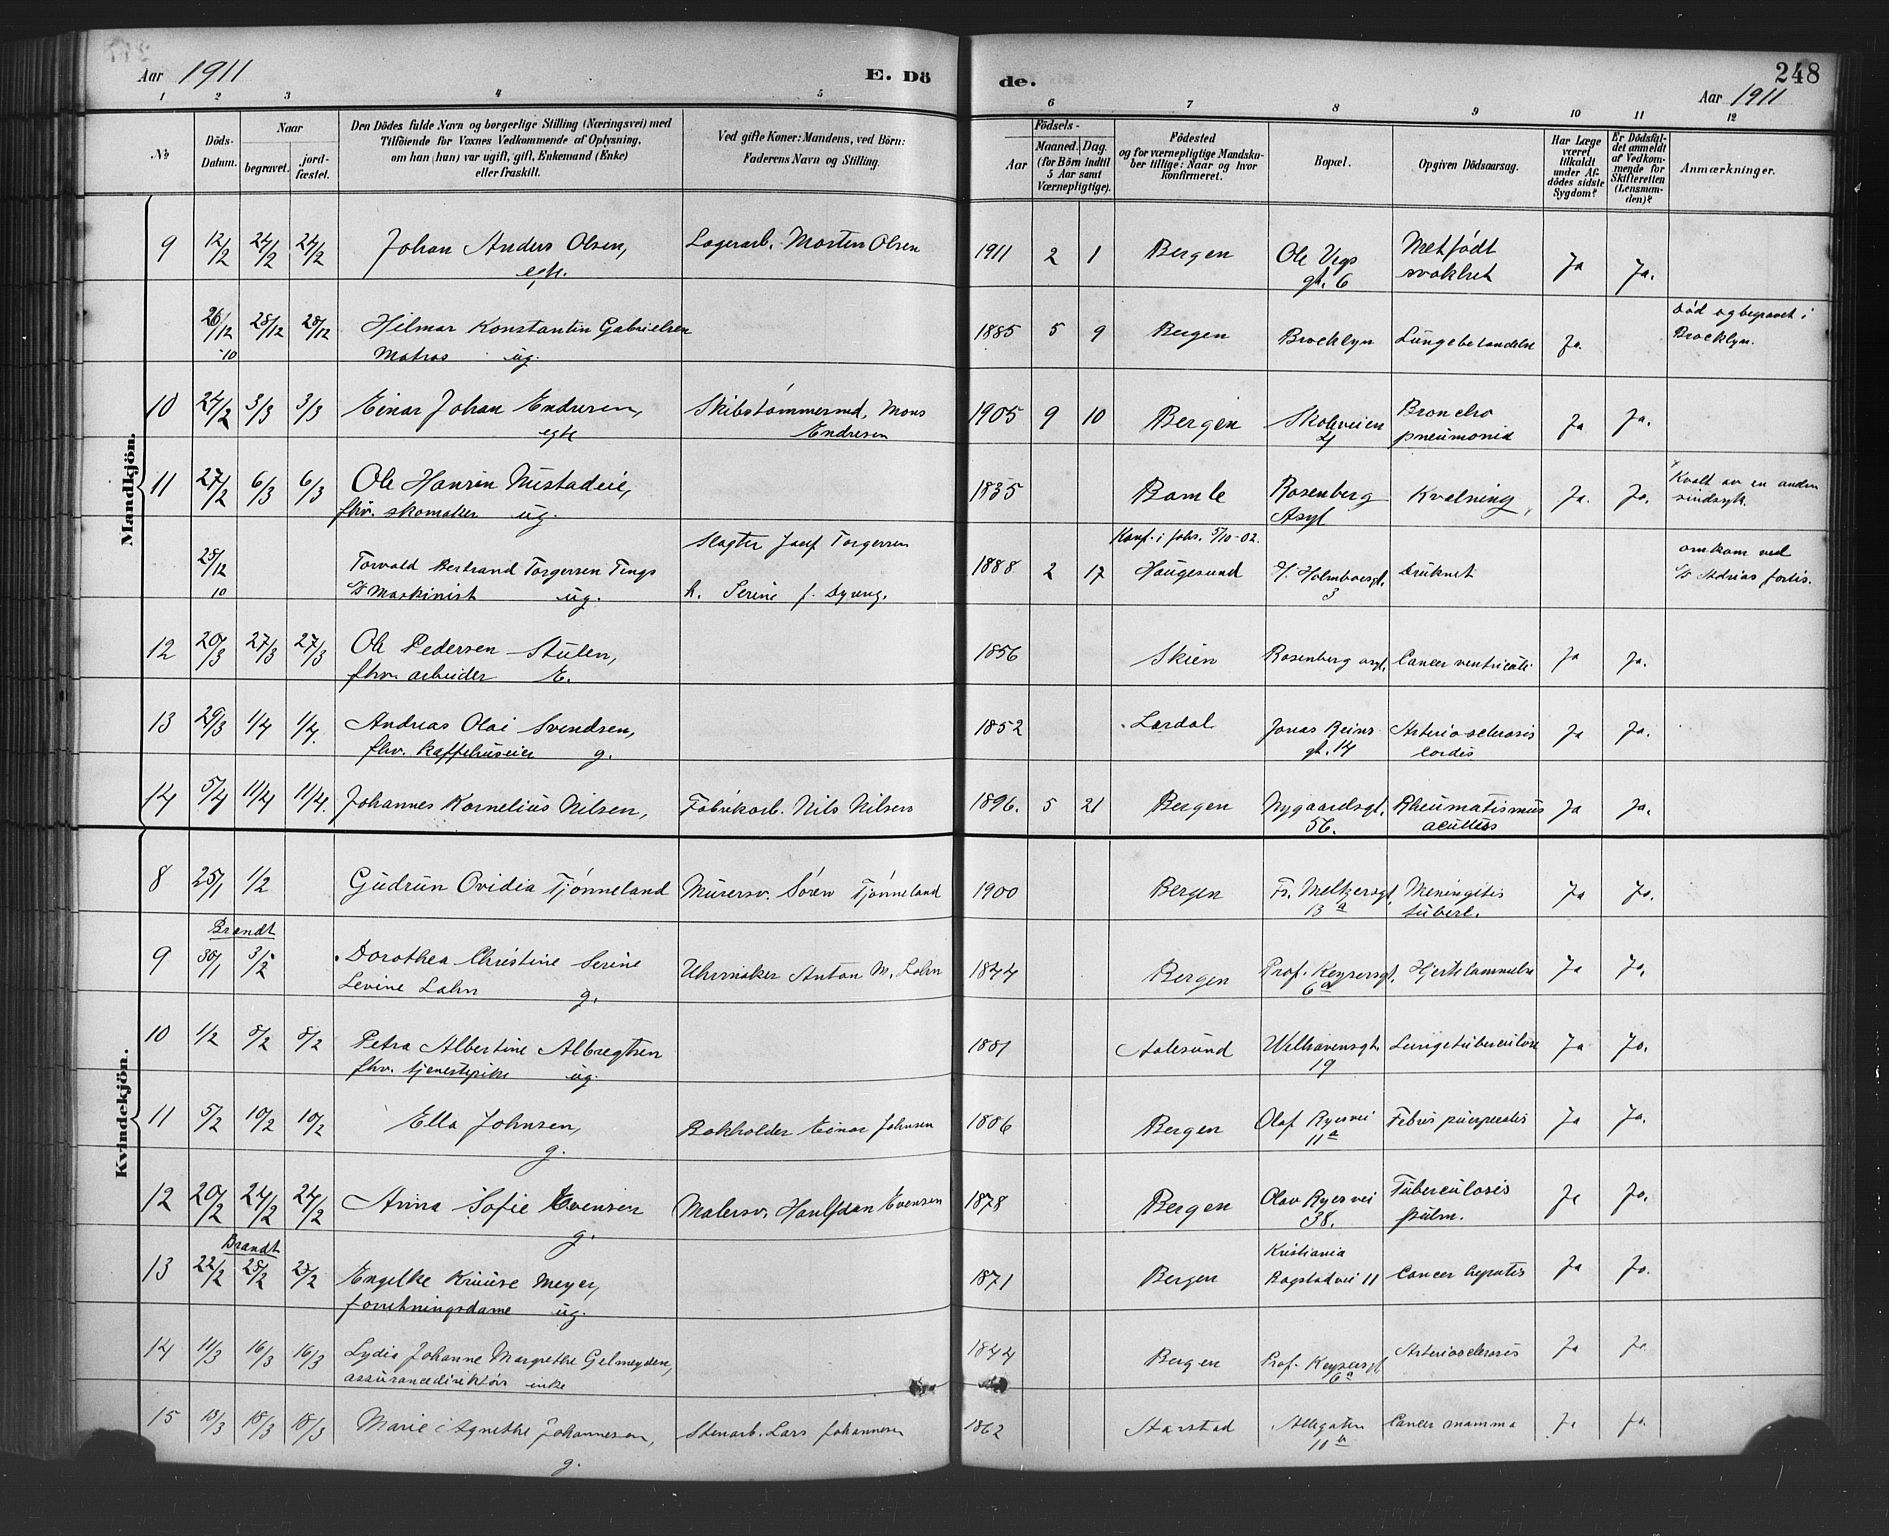 Aar 1911
E. Dö
de.
248
Aar 1911
1 2 3 4 5 6 7 8 9 10 11 12
No
Döds-Datum.
Naar
begravet.
jord-fæstet.
Den Dödes fulde Navn og borgerlige Stilling (Næringsvei) med
Tilföiende for Voxnes Vedkommende af Oplysning,
om han (hun) var ugift, gift, Enkemand (Enke)
eller fraskilt.
Ved gifte Koner: Mandens, ved Börn:
Faderens Navn og Stilling.
Födsels-
Aar
Maaned. Dag.
(for Börn indtil
5 Aar samt
Værnepligtige).
Födested
og for værnepligtige Mandska-
ber tillige: Naar og hvor
konfirmeret.
Bopæl.
Opgiven Dödsaarsag.
Har Læge
været
tilkaldt
under Af-
dödes sidste
Sygdom?
Er Dödsfal-
det anmeldt
af Vedkom-
mende for
Skifteretten
(Lensman-
den)?
Anmærkninger.
Mandkjön.
9 12/2 24/2 24/2 Johan Anders Olsen, Lagerarb. Morten Olsen 1911 2 1 Bergen Ole Vigs Medfødt Ja Ja.
egte. gt. 6 svakhet
26/12 28/12 28/12 Hilmar Konstantin Gabrielsen 1885 5 9 Bergen Brooklyn Lungebetændelse Ja. død og begravet i
10 Matros ug. Brooklyn.
10 24/2 3/3 3/3 Einar Johan Endresen, Skibstømmermd. Mons 1905 9 10 Bergen Skoleveien Broncho Ja Ja.
egte Endresen 4 pneumonia
11 27/2 6/3 6/3 Ole Hansen 1835 Bamle Rosenberg Kvælning Ja. Ja. Kvalt av en anden
fhv. skomaker ug. Asyl sindsyk.
28/12 Torvald Bertrand Torgersen Slagter Josef Torgersen Konf. i Johs. 5/10-02. 1888 2 17 Haugesund H. Holmboesgt. Druknet omkom ved
10 Maskinist ug. h. Serine f. 3 S/S Adrias forlis.
12 20/3 27/3 27/3 Ole Pedersen Stulen, 1856 Skien Rosenberg asyl. Cancer ventriculi Ja Ja.
fhv. arbeider E.
13 29/3 1/4 1/4. Andreas Olai Svendsen, 1852 Lærdal Jonas Reins Arteriosclerosis Ja Ja.
fhv. kaffehuseier g. gt. 14 cordis
14 5/4 11/4 11/4. Johannes Kornelius Nilsen, Fabrikarb. Nils Nilsen 1896. 5 21 Bergen Nygaardsgt. Rheumatismus Ja Ja.
56. acutus
Kvindekjön.
8 25/1 1/2 Gudrun Ovidia Tjønneland Murersv. Søren Tjønneland 1900 Bergen Fr. Meltzersgt. Meningitis Ja Ja.
13 a tuberc.
Brandt
9 30/1 3/2 Dorothea Christine Serine Uhrmaker Anton M. Lohn 1844 Bergen Prof. Keysersgt. Hjertelammelse Ja Ja.
Levine Lohn g. 6a
10 1/2 8/2 8/2 Petra Albertine Albregtsen 1881 Aalesund Welhavensgt. Lungetuberculose Ja Ja.
fhv. tjenestepike ug. 19
11 5/2 10/2 10/2 Ella Johnsen, Bokholder Einar Johnsen 1886 Bergen Olaf Ryesvei Febris puerperalis Ja Ja.
g. 11a
12 20/2 24/2 24/2 Anna Sofie Evensen Malersv. Haulfdan Evensen 1878 Bergen Olav Ryesvei Tuberculosis Ja Ja.
g. 38. pulm.
Brandt
13 22/2 25/2 25/2 Engelke Kruuse Meyer, 1871 Bergen Kristiania Cancer hepatis Ja Ja.
forretningsdame ug. Bogstadvei 11
14 11/3 16/3 16/3 Lydia Johanne Margrethe Gelmeyden, 1844 Bergen Prof. Keysersgt. Arteriosclerosis Ja Ja
assurancedirektørs enke 6a
15 13/3 18/3 18/3 Marie Agnethe Johannesen, Stenarb. Lars Johannesen 1862 Allegaten Cancer mamma Ja Ja.
g.